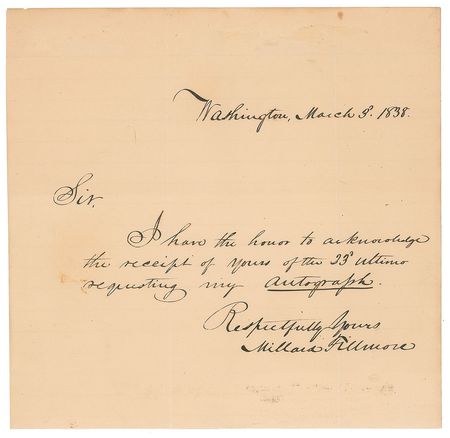 Washington, March 3. 1838.
Sir.
I have the honor to acknowledge
the receipt of yours of the 23d ultimo
requesting my Autograph.
Respectfully Yours
Millard Fillmore